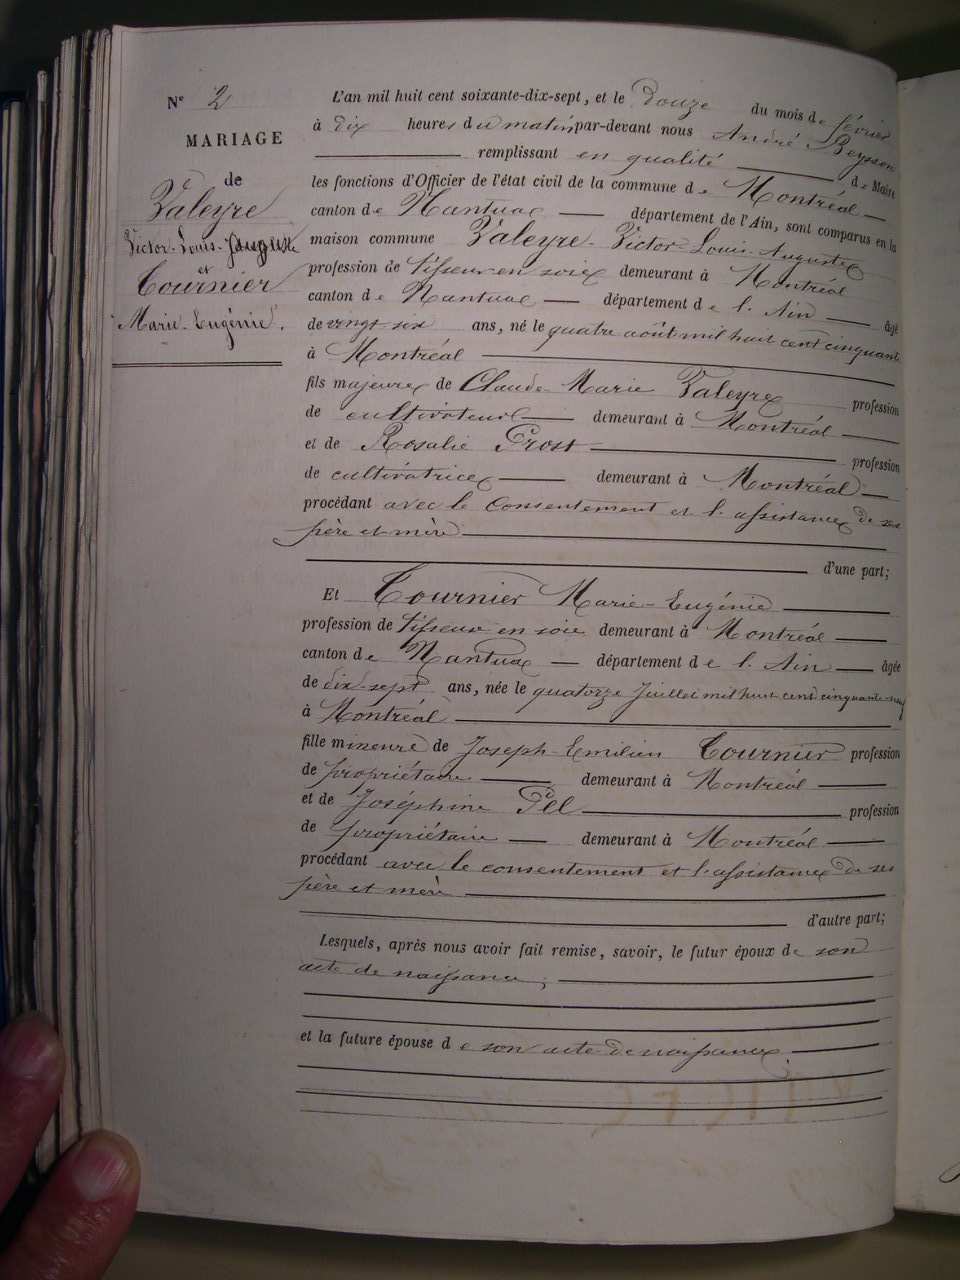 N° 2
MARIAGE
de
Valeyre
Victor-Louis-Auguste
et
Tournier
Marie-Eugénie.
L'an mil huit cent soixante-dix-sept, et le douze du mois de février
à dix heures du matin par-devant nous André Beysson
remplissant en qualité de Maire
les fonctions d'Officier de l'état civil de la commune de Montréal
canton de Nantua département de l'Ain, sont comparus en la
maison commune Valeyre Victor Louis Auguste
profession de tisseur en soie demeurant à Montréal
canton de Nantua département de l'Ain âgé
de vingt-six ans, né le quatre août mil huit cent cinquante
à Montréal
fils majeur de Claude Marie Valeyre profession
de cultivateur demeurant à Montréal
et de Rosalie Prost profession
de cultivatrice demeurant à Montréal
procédant avec le consentement et l'assistance de ses
père et mère
d'une part;
Et Tournier Marie-Eugénie
profession de tisseur en soie demeurant à Montréal
canton de Nantua département de l'Ain âgée
de dix-sept ans, née le quatorze Juillet mil huit cent cinquante-neuf
à Montréal
fille mineure de Joseph-Emilien Tournier profession
de propriétaire demeurant à Montréal
et de Joséphine Pél profession
de propriétaire demeurant à Montréal
procédant avec le consentement et l'assistance de ses
père et mère
d'autre part;
Lesquels, après nous avoir fait remise, savoir, le futur époux de son
acte de naissance;
et la future épouse de son acte de naissance.